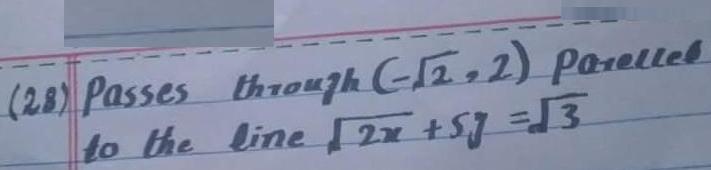 (28) Passes through (-√2, 2) Parellel
to the line √2x + 5y = √3